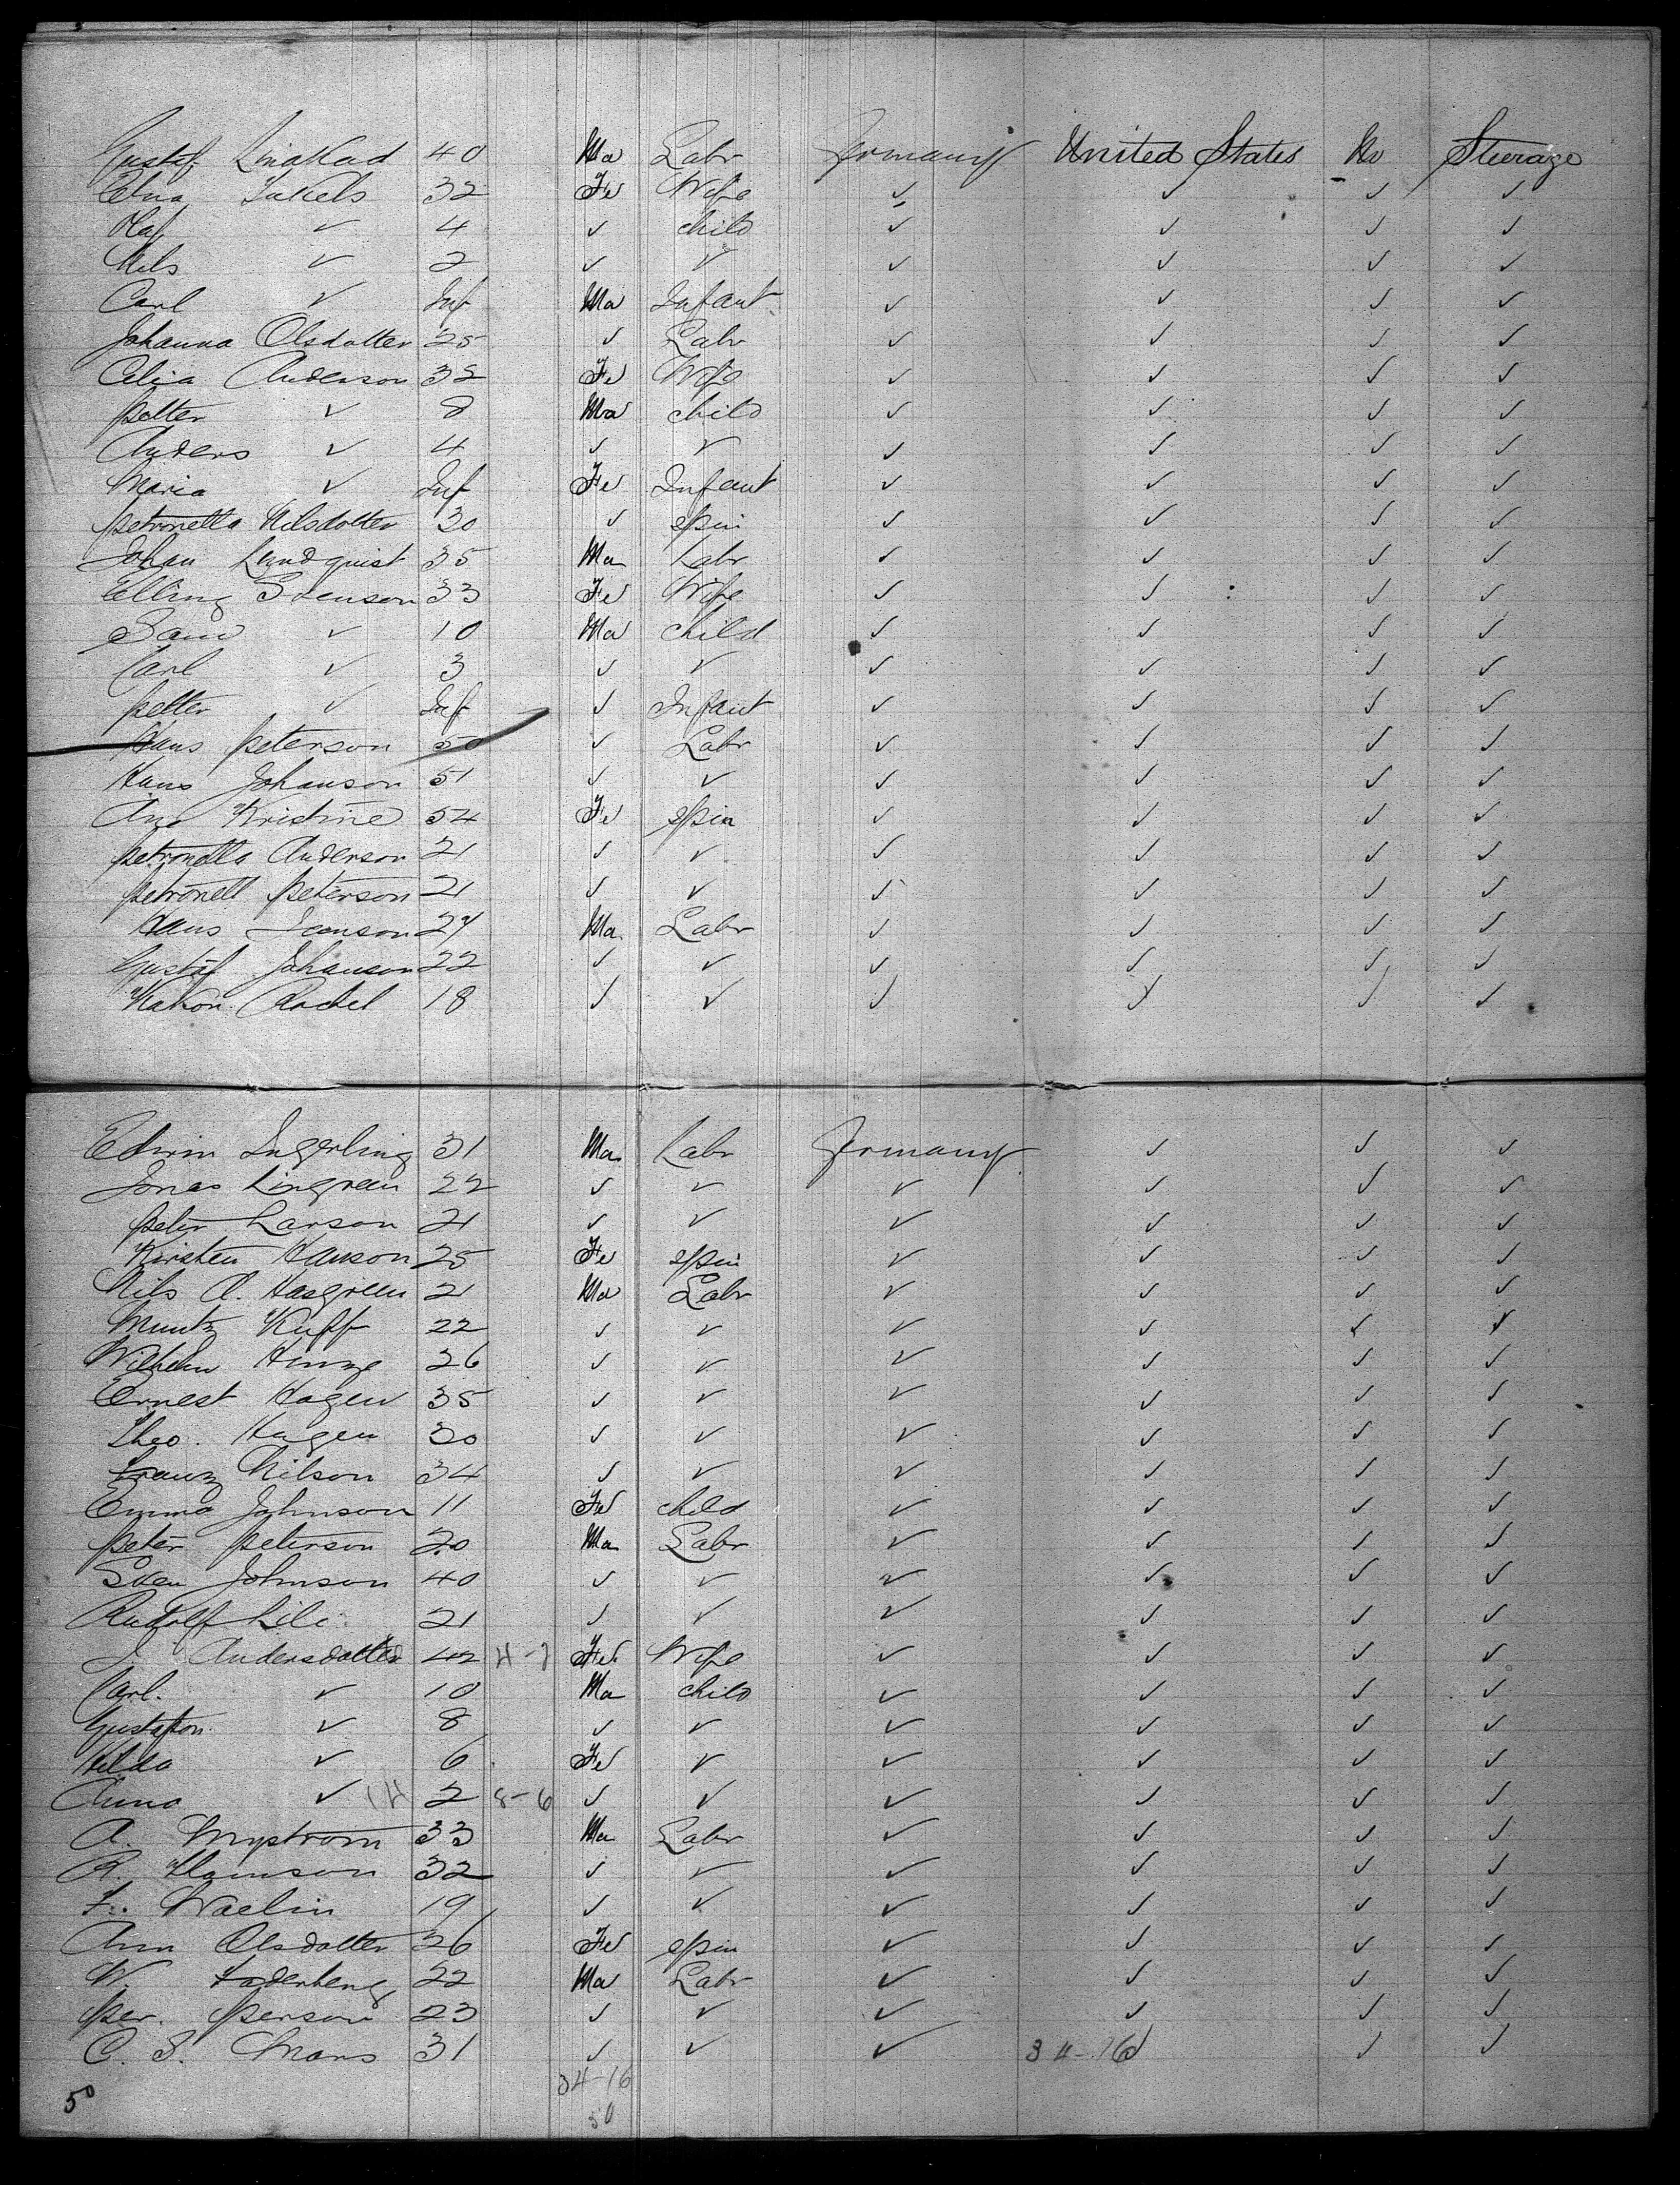 Gustaf 40 Ma Labr Germany United States No Steerage
32 Fe Wife ✓ ✓ ✓ ✓
Olaf ✓ 4 ✓ child ✓ ✓ ✓ ✓
Nils ✓ 2 ✓ ✓ ✓ ✓ ✓ ✓
Carl ✓ Inf Ma Infant ✓ ✓ ✓ ✓
Johanna Olsdotter 25 ✓ Labr ✓ ✓ ✓ ✓
Celia Anderson 32 Fe Wife ✓ ✓ ✓ ✓
Petter ✓ 8 Ma child ✓ ✓ ✓ ✓
Anders ✓ 4 ✓ ✓ ✓ ✓ ✓ ✓
Maria ✓ Inf Fe Infant ✓ ✓ ✓ ✓
Petronella Nilsdotter 30 ✓ spin ✓ ✓ ✓ ✓
Johan Lundquist 35 Ma Labr ✓ ✓ ✓ ✓
Elling Svenson 33 Fe Wife ✓ ✓ ✓ ✓
✓ 10 Ma child ✓ ✓ ✓ ✓
Carl ✓ 3 ✓ ✓ ✓ ✓ ✓ ✓
Petter ✓ Inf ✓ Infant ✓ ✓ ✓ ✓
Hans Peterson 50 ✓ Labr ✓ ✓ ✓ ✓
Hans Johanson 51 ✓ ✓ ✓ ✓ ✓ ✓
Ane Kristine 54 Fe spin ✓ ✓ ✓ ✓
Petronella Anderson 21 ✓ ✓ ✓ ✓ ✓ ✓
Petronell Peterson 21 ✓ ✓ ✓ ✓ ✓ ✓
Hans 27 Ma Labr ✓ ✓ ✓ ✓
Gustaf Johanson 22 ✓ ✓ ✓ ✓ ✓ ✓
18 ✓ ✓ ✓ ✓ ✓ ✓
Edwin Ingerling 31 Ma Labr Germany ✓ ✓ ✓
Jonas Lingreen 22 ✓ ✓ ✓ ✓ ✓ ✓
Peter Larson 21 ✓ ✓ ✓ ✓ ✓ ✓
Kirsten Hanson 25 Fe spin ✓ ✓ ✓ ✓
Nils A. Hasgreen 21 Ma Labr ✓ ✓ ✓ ✓
Muntz Kuff 22 ✓ ✓ ✓ ✓ ✓ ✓
Wilhelm Hinze 26 ✓ ✓ ✓ ✓ ✓ ✓
Ernest Hagen 35 ✓ ✓ ✓ ✓ ✓ ✓
Theo. Hagen 30 ✓ ✓ ✓ ✓ ✓ ✓
Franz Nilson 34 ✓ ✓ ✓ ✓ ✓ ✓
Emma Johnson 11 Fe child ✓ ✓ ✓ ✓
Peter Peterson 20 Ma Labr ✓ ✓ ✓ ✓
Sven Johnson 40 ✓ ✓ ✓ ✓ ✓ ✓
Rudolf Lili 21 ✓ ✓ ✓ ✓ ✓ ✓
J. Andersdotter 42 4-7 Fe Wife ✓ ✓ ✓ ✓
Carl. ✓ 10 Ma child ✓ ✓ ✓ ✓
Gustafson ✓ 8 ✓ ✓ ✓ ✓ ✓ ✓
Hilda ✓ 6 Fe ✓ ✓ ✓ ✓ ✓
Anna ✓ 14 2 8-6 ✓ ✓ ✓ ✓ ✓ ✓
A. Nystrom 33 Ma Labr ✓ ✓ ✓ ✓
32 ✓ ✓ ✓ ✓ ✓ ✓
F. Waelin 19 ✓ ✓ ✓ ✓ ✓ ✓
Ann Olsdotter 36 Fe spin ✓ ✓ ✓ ✓
W. 22 Ma Labr ✓ ✓ ✓ ✓
Per. Person 23 ✓ ✓ ✓ ✓ ✓ ✓
C. S. Mans 31 ✓ ✓ ✓ 34-16 ✓ ✓ ✓
34-16
50 50